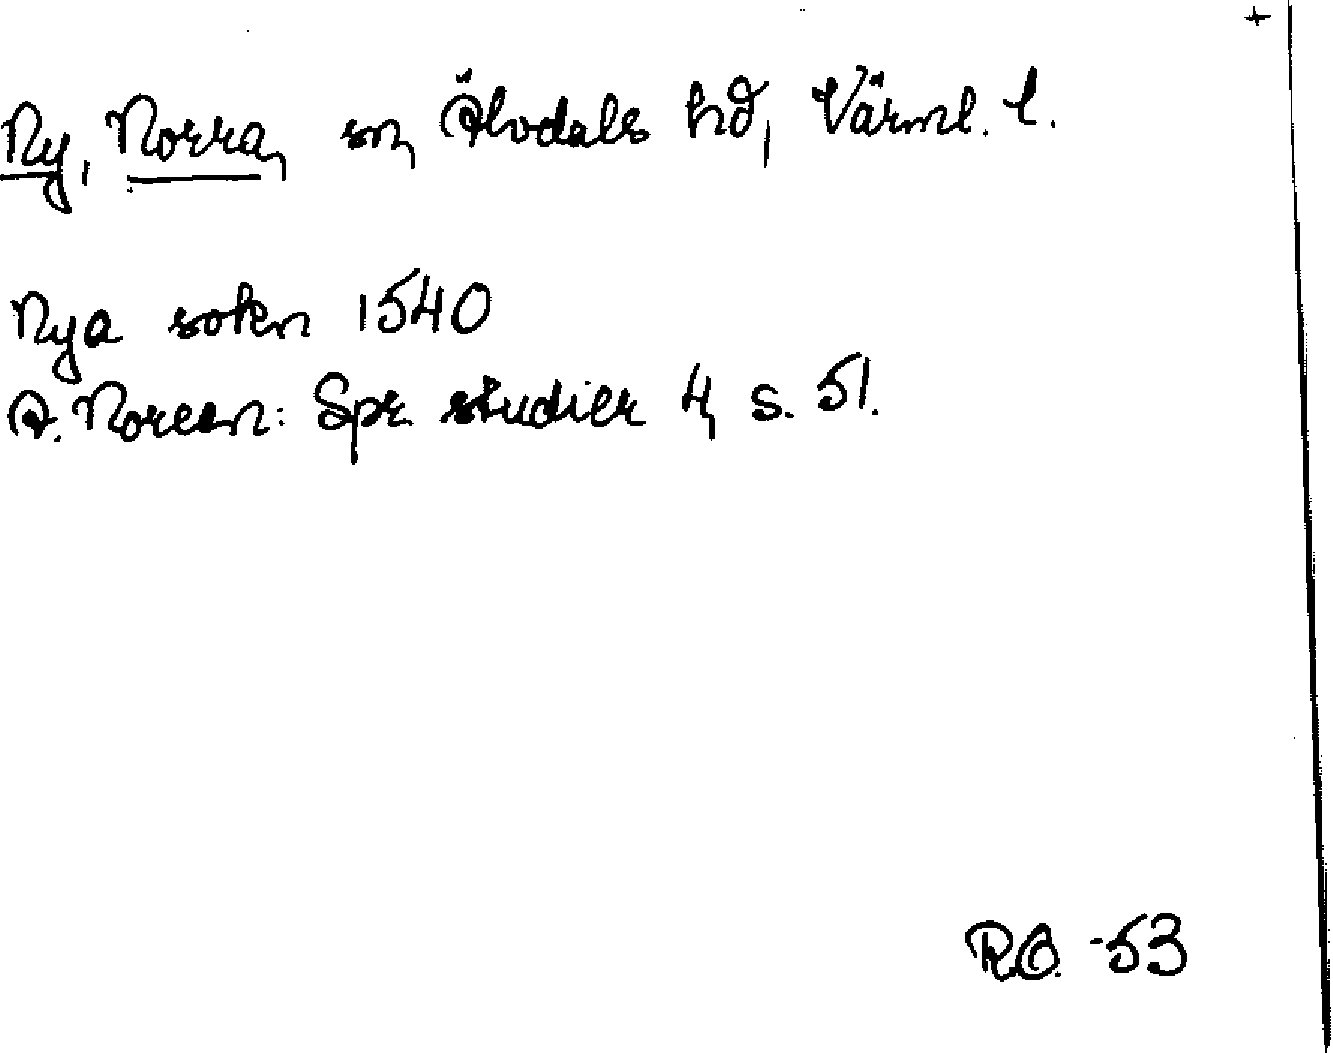 +
Ny, Norra, sn, Älvdals hd, Värml. l.
Nya sokn 1540
A. Noreen: Spr. studier 4, s. 51.
R.O. -53